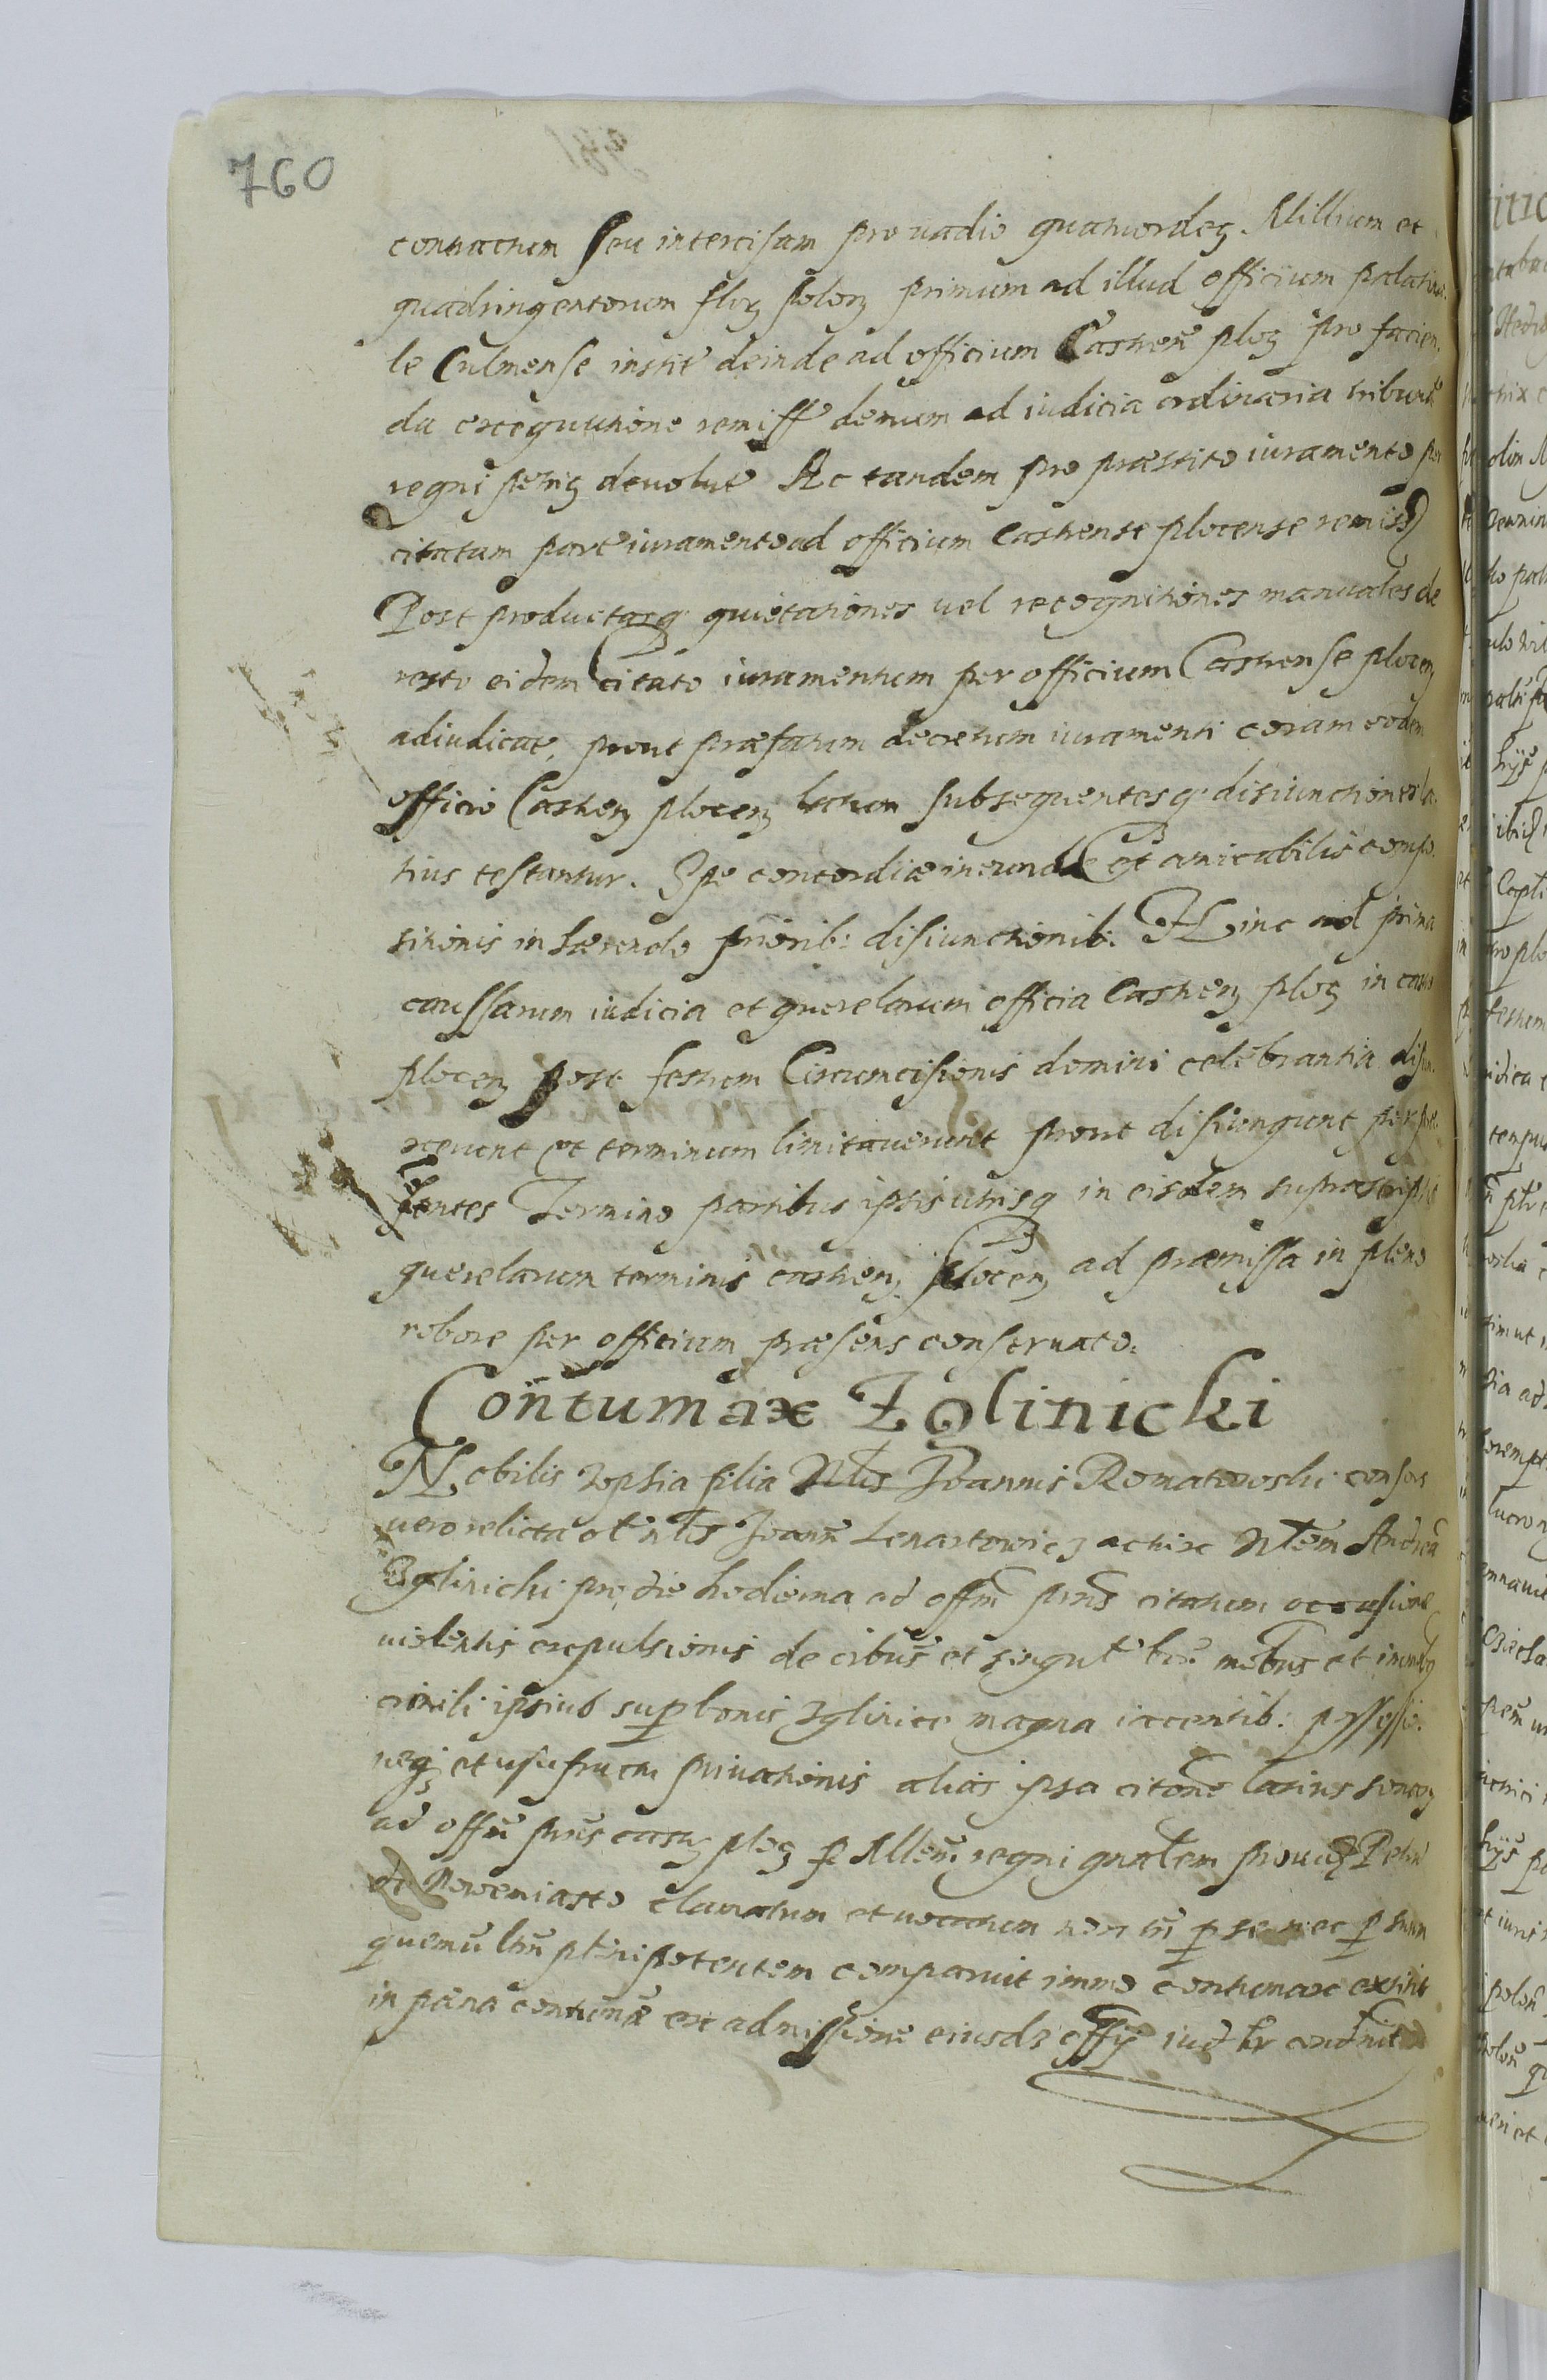 760
contractum seu intercisam pro vadio quatuordeg. Millium et
quadringentorum flor polon primum ad illud officium palatina
le Culmense instit deinde ad officium Castren ploc pro facien
da exequutione remiss demum ad iudicia ordinaria tribunal
regni devolut Ac tandem pro præstito iuramento per
citatum parte iuramento ad officium Castrense plocense remiss
Post productasq quietationes vel recognitiones manuales de
resto eidem citato iuramentum per officium Castrense plocen
adiudicat, prout præfatum decretum iuramenti coram eodem
officio Castren plocen latum subsequentesq disiunctiones la
tius testantur. Spe concordiæ ineundæ et amicabilis compo
sitionis in hærendo priorib: disiunctionib: Hinc ad prima
caussarum iudicia et querelarum officia Castren ploc in castro
plocen post festum Circumcisionis domini celebrantia disiun
xerunt et terminum limitaverunt prout disiungunt per præ
sentes Termino partibus ipsis utrisq in eisdem suprascriptis
querelarum terminis castren plocen ad præmissa in pleno
robore per officium præsens conservato.
Contumax Zglinicki
Nobilis Zophia filia Nlis Joannis Romatowski consors
vero relicta ol nlis Joann Lenartowicz actrix Nlem Andream
Zglinicki pro die hodierna ad offm prns citatum occasione
violentis expulsionis de oibus et singulis bonis mobus et immob
simili ipsius sup bonis Zglinice magna iacentib: possessio
neq et usufructu privationis alias ipsa citone latius sonan
ad offm prns castr ploc p Mllem regni gnalem provid Petrum
de Nowemiasto clamatum et vocatum non tm p se nec p suum
quemvltm plenipotentem comparuit immo contumax extitit
in pæna contumæ ex admissione eiusdz offy iudlr condnit